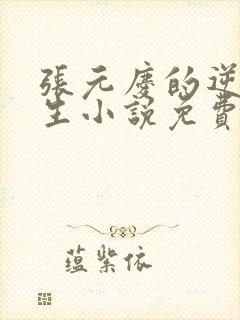 張元慶的逆
生小說免費
蘊紫依